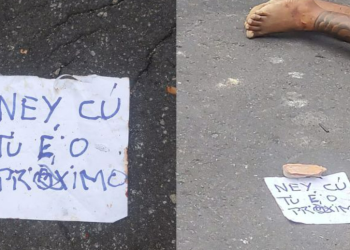 NEY CÚ
TU É O
PRÓXIMO
NEY CÚ
TU É O
PRÓXIMO